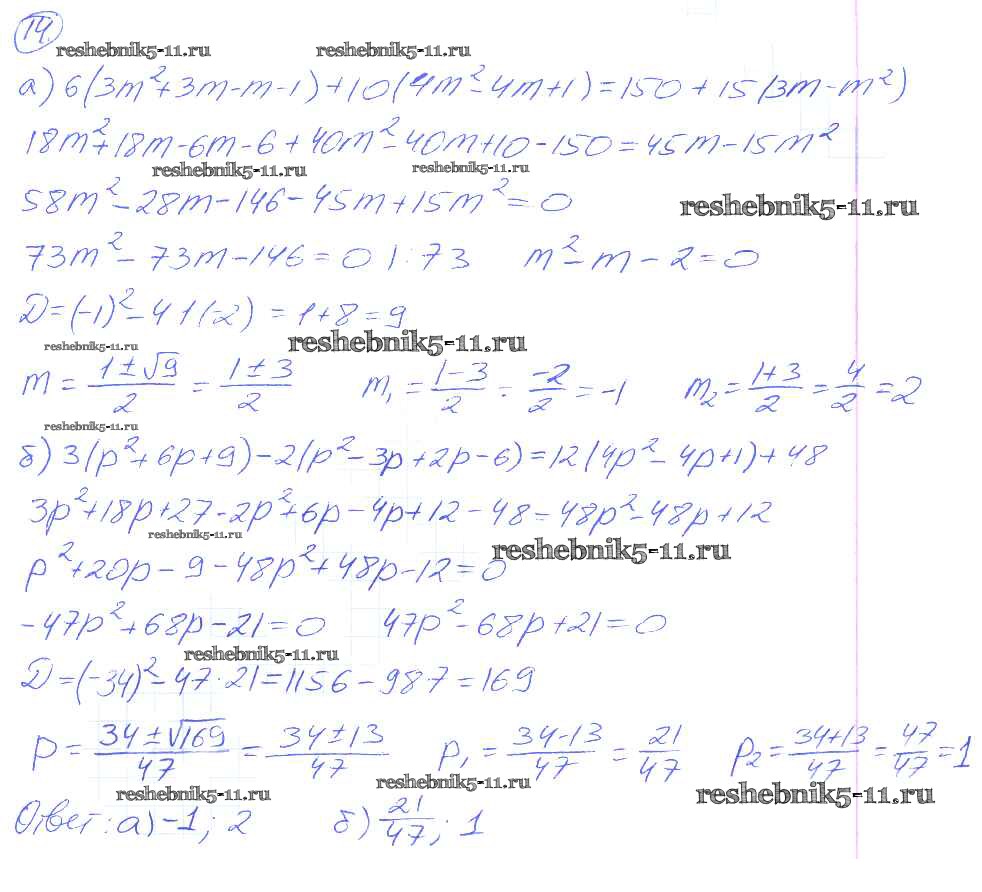 14.
reshebnik5-11.ru reshebnik5-11.ru
а) 6(3m²+3m-m-1)+10(4m²-4m+1)=150+15(3m-m²)
18m²+18m-6m-6+40m²-40m+10-150=45m-15m²
reshebnik5-11.ru reshebnik5-11.ru
58m²-28m-146-45m+15m²=0
reshebnik5-11.ru
73m²-73m-146=0 |:73 m²-m-2=0
D=(-1)²-4·1(-2)=1+8=9
reshebnik5-11.ru reshebnik5-11.ru
m=(1±√9)/2=(1±3)/2 m₁=(1-3)/2=-2/2=-1 m₂=(1+3)/2=4/2=2
reshebnik5-11.ru
б) 3(p²+6p+9)-2(p²-3p+2p-6)=12(4p²-4p+1)+48
3p²+18p+27-2p²+6p-4p+12-48=48p²-48p+12
reshebnik5-11.ru reshebnik5-11.ru
p²+20p-9-48p²+48p-12=0
-47p²+68p-21=0 47p²-68p+21=0
reshebnik5-11.ru
D=(-34)²-47·21=1156-987=169
p=(34±√169)/47=(34±13)/47 p₁=(34-13)/47=21/47 p₂=(34+13)/47=47/47=1
reshebnik5-11.ru reshebnik5-11.ru reshebnik5-11.ru
Ответ: а) -1; 2 б) 21/47; 1